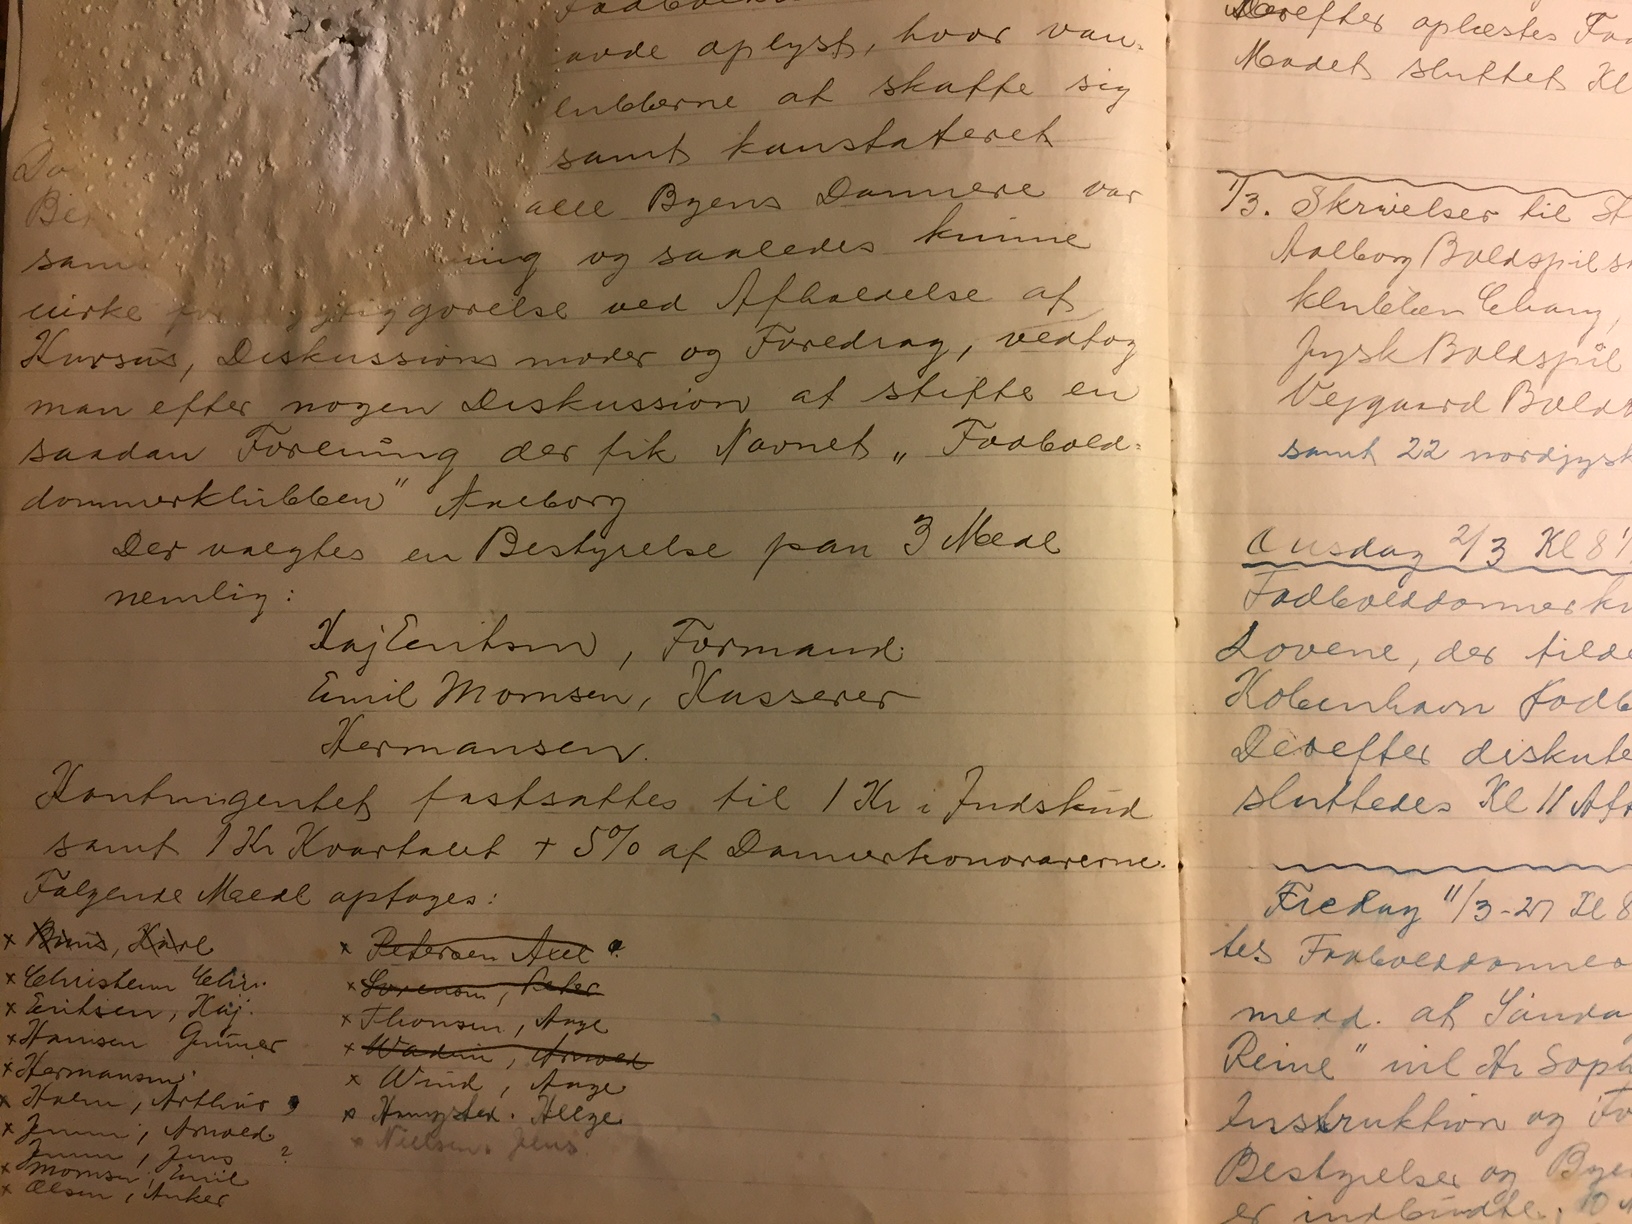 avde oplyst, hvor van-
lubberne at skaffe sig
samt konstateret
Da
alle Byens Dommere var
sam ing og saaledes kunne
virke gørelse ved Afholdelse af
Kursus, Diskussions møder og Foredrag, vedtog
man efter nogen Diskussion at stifte en
saadan Forening der fik Navnet „Fodbold-
dommerklubben" Aalborg
Der valgtes en Bestyrelse paa 3 Medl
nemlig:
Kaj Eriksen, Formand.
Emil Momsen, Kasserer
Hermansen.
Kontingentet fastsattes til 1 Kr i Indskud
samt 1 Kr Kvartalet + 5% af Dommerhonorarerne.
Følgende Medl optoges:
x Karl
x Christensen Chr.
x Eriksen, Kaj.
x Hansen Gunner
x Hermansen
x Holm, Arthur
x Jensen, Arnold
Jensen, Jens ?
x Momsen, Emil
x Olsen, Anker
x Petersen Axel
x Sørensen, Peter
x Thomsen, Aage
x Arnold
x Wind, Aage
x Helge
x Nielsen. Jens
Derefter oplæstes
Mødet sluttet Kl
1/3. Skrivelser til
Aalborg Boldspil
klubben Chang,
Jysk Boldspil
Vejgaard Bold
samt 22 nordjysk
Onsdag 2/3 Kl 8
Fodbolddommerkl
Lovene, der tilde
København Fodb
Derefter diskute
sluttedes Kl 11 Aft
Fredag 11/3-27 Kl 8
tes Fodbolddommer
medd. at Sønda
Reine" vil Hr Soph
Instruktion og Fo
Bestyrelser og Bye
er indbudte.